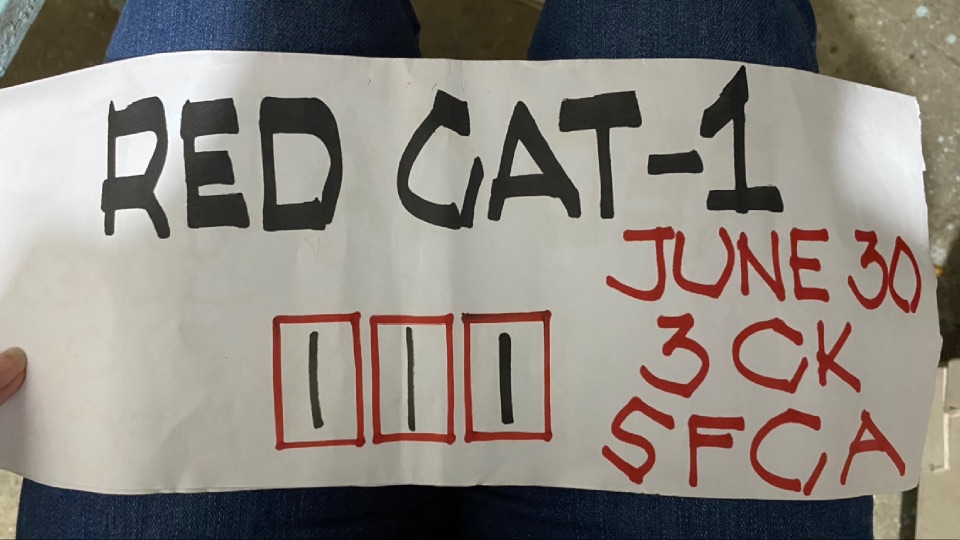 RED CAT-1
JUNE 30
3 CK
SFCA
1 1 1